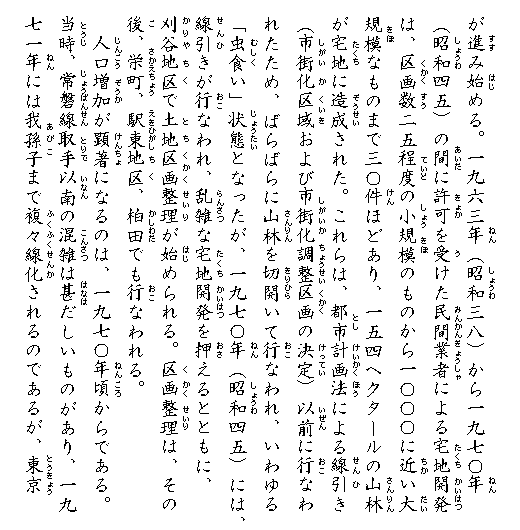 が進み始める。一九六三年（昭和三八）から一九七〇年
（昭和四五）の間に許可を受けた民間業者による宅地開発
は、区画数二五程度の小規模のものから一〇〇〇に近い大
規模なものまで三〇件ほどあり、一五四ヘクタールの山林
が宅地に造成された。これらは、都市計画法による線引き
（市街化区域および市街化調整区画の決定）以前に行なわ
れたため、ばらばらに山林を切開いて行なわれ、いわゆる
「虫食い」状態となったが、一九七〇年（昭和四五）には、
線引きが行なわれ、乱雑な宅地開発を押えるとともに、
刈谷地区で土地区画整理が始められる。区画整理は、その
後、栄町、駅東地区、柏田でも行なわれる。
人口増加が顕著になるのは、一九七〇年頃からである。
当時、常磐線取手以南の混雑は甚だしいものがあり、一九
七一年には我孫子まで複々線化されるのであるが、東京